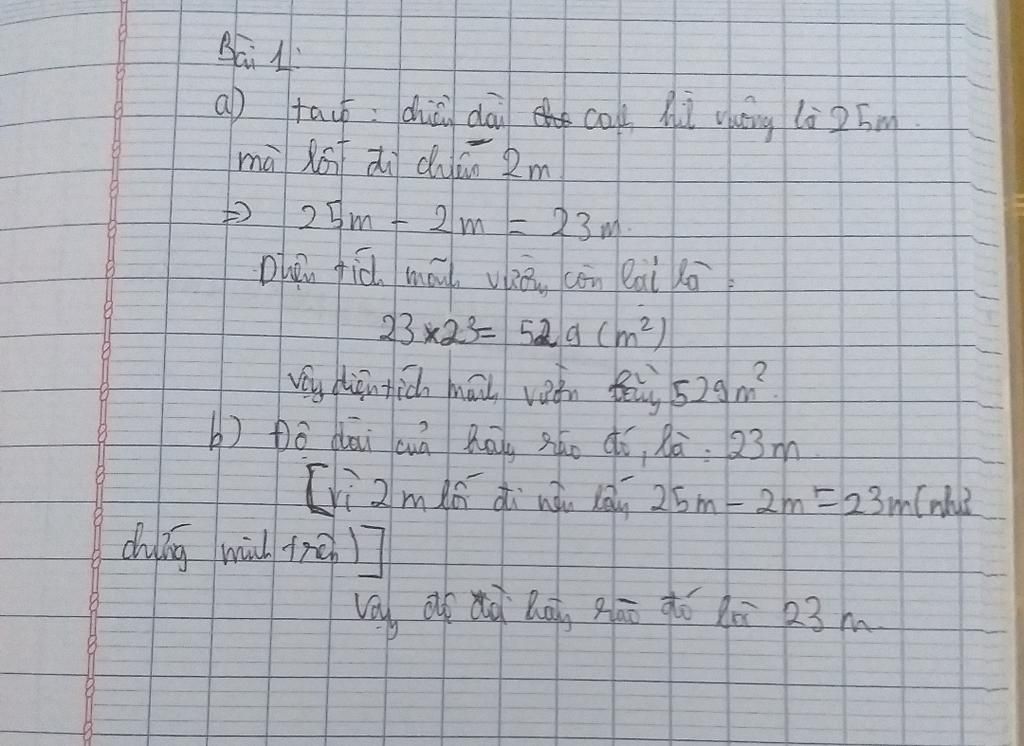 Bài 1:
a) ta có: chiều dài cạnh hình vuông là 25m.
mà lối đi chiếm 2m
=> 25m - 2m = 23m.
Diện tích mảnh vườn còn lại là:
23 x 23 = 529 (m²)
Vậy diện tích mảnh vườn bằng 529m².
b) Độ dài của hàng rào đó, là: 23m.
[vì 2m lối đi nên lấy 25m - 2m = 23m (như
chứng minh trên)]
Vậy độ dài hàng rào đó là 23m